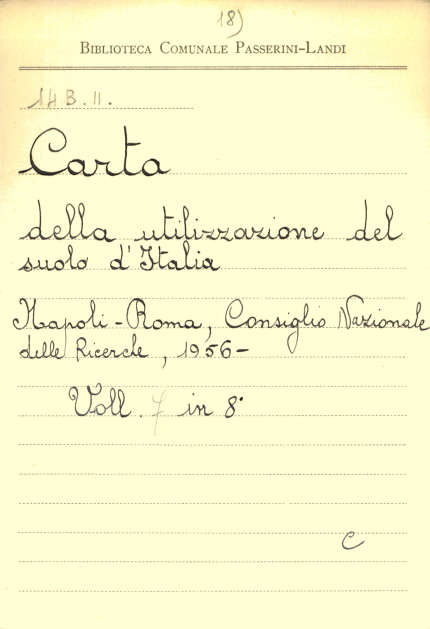 18)
BIBLIOTECA COMUNALE PASSERINI-LANDI
14 B. II.
Carta
della utilizzazione del
suolo d'Italia
Napoli - Roma, Consiglio Nazionale
delle Ricerche, 1956-
Voll. 7 in 8°
C